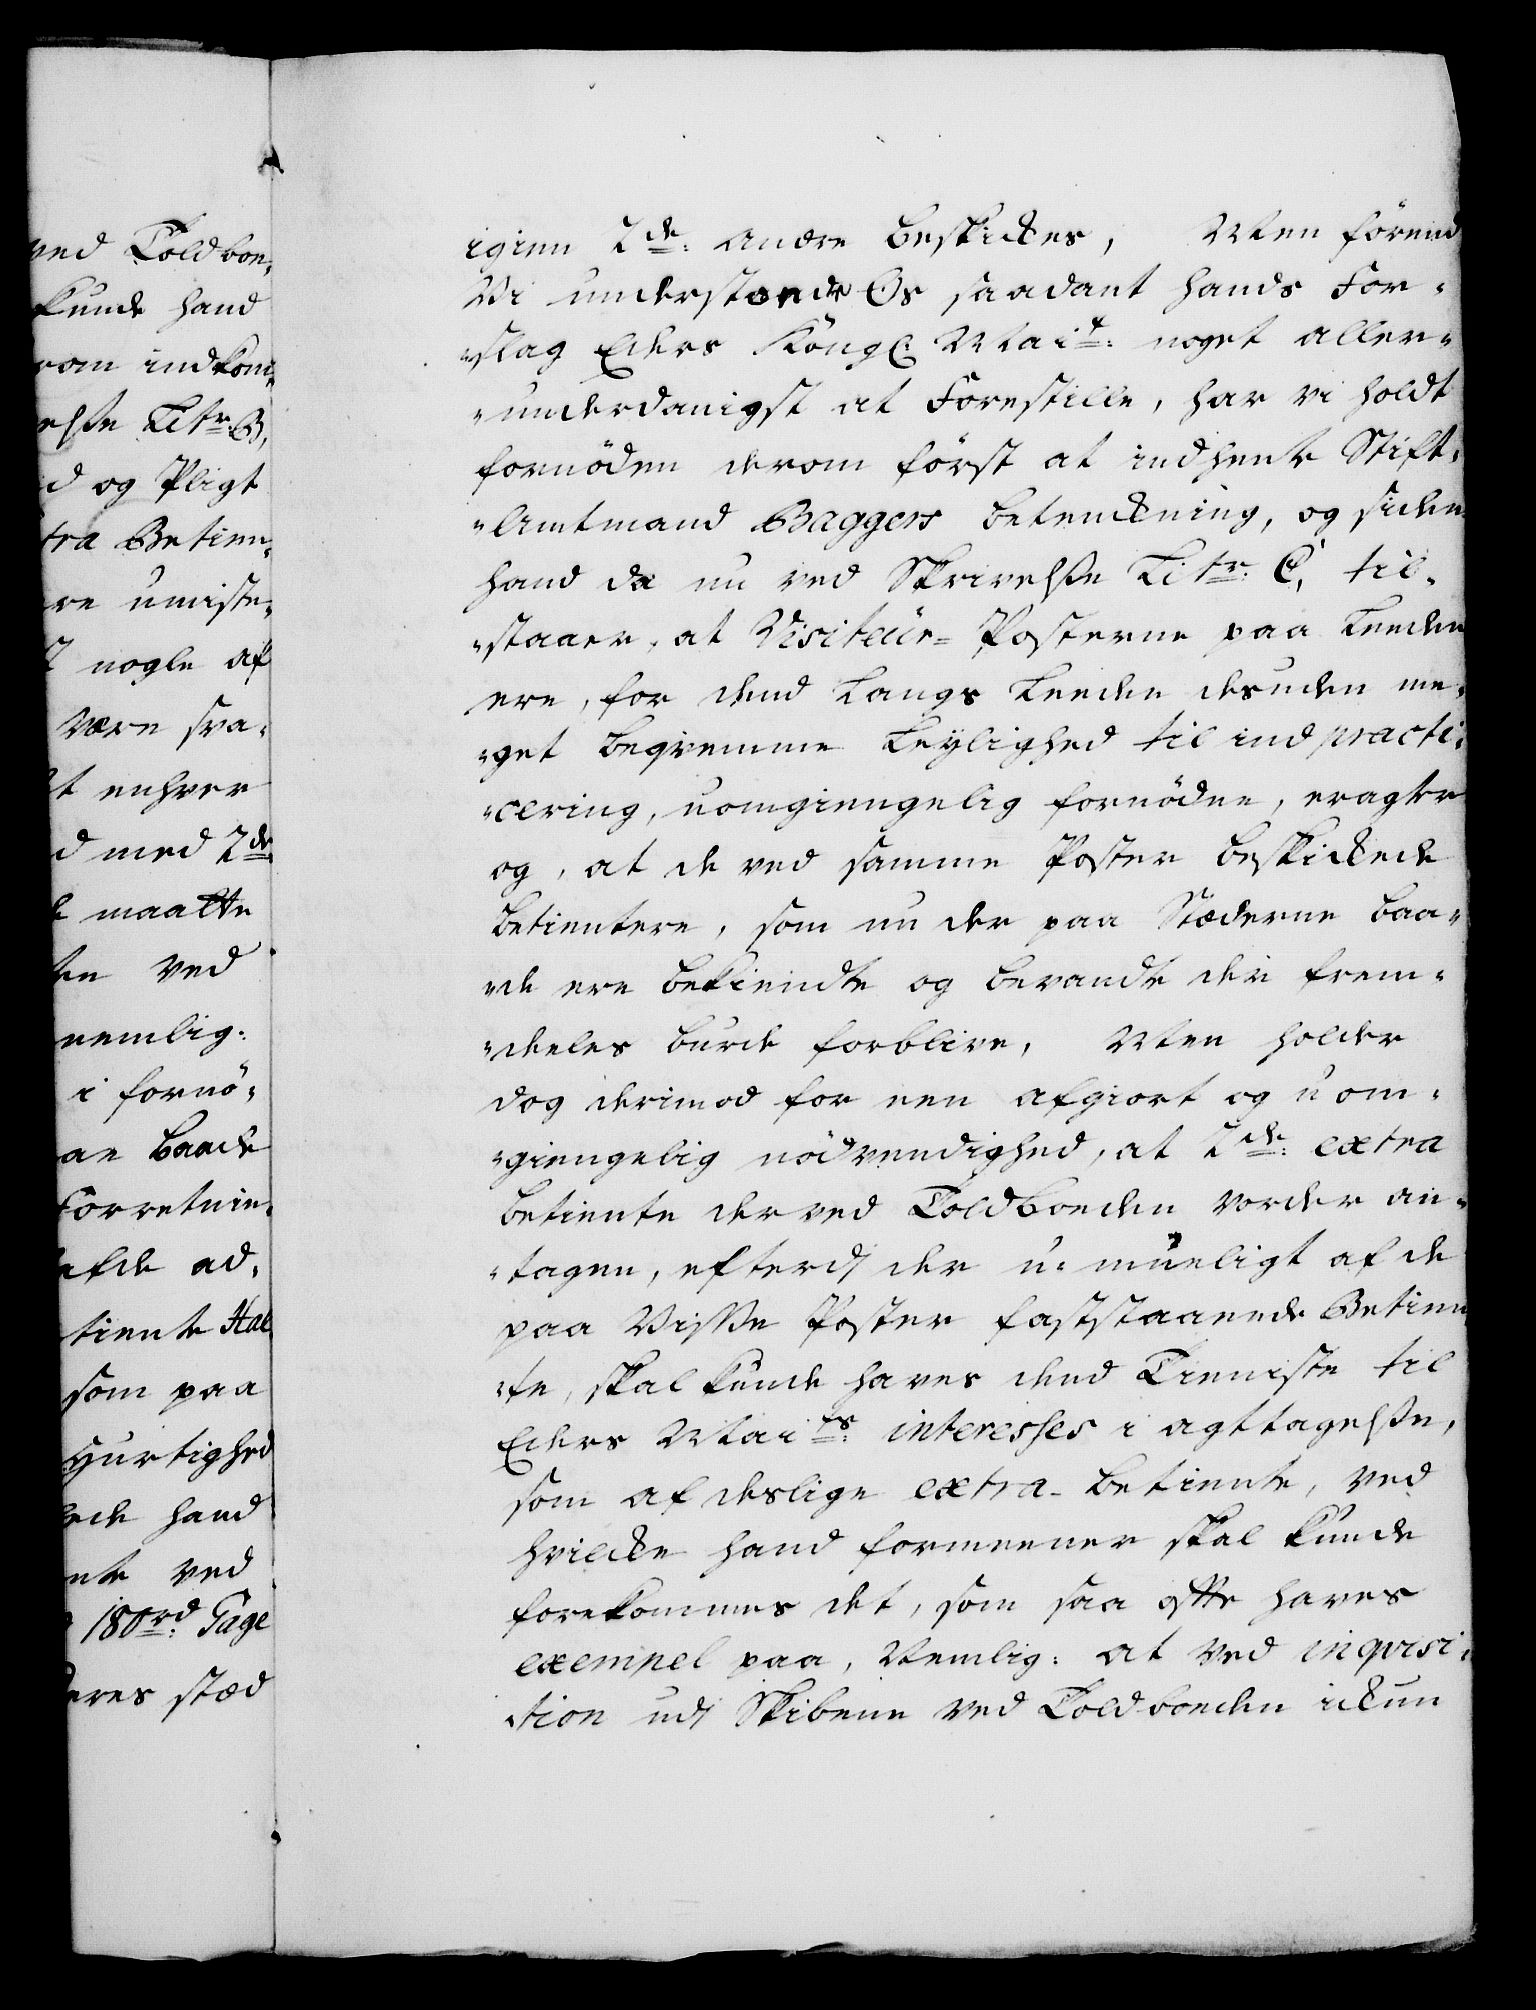 ved Toldboe,
kunde hand
rom indkom,
else Litr. B,
d og Pligt
tra Betien,
re umiste,
nogle af
være sva,
t enhver
d med 2de
maatte
ved
nemlig:
i fornö,
an baade
Forretnin,
ad,
tiente Hal
som paa
Hurtighed
hand
nte ved
180rd. Gage
eres stæd
igien 2de: andre beskickes, Men förend
Vi understonde Os saadant hands For-
-slag Eders Köngl: Mait: noget aller-
-underdanigst at Forestille, har vi holdt
fornöden derom först at indhente Stift-
-Amtmand Baggers betenckning, og siden
hand da nu ved Skrivelsse Litr: C, til-
-staaer, at Visiteür-Posterne paa Leeden
ere, for dend Langs Leeden desuden me-
-get beqvemme Leylighed til indpracti-
-cering, uomgiengelig fornödne, eragter
og, at de ved samme Poster beskickede
betientere, som nu der paa Stæderne baa-
-de ere bekiendte og bevandte der frem-
-deles burde forblive, Men holder
dog derimod for een afgiort og uom-
-giengelig nödvendighed, at 2de: extra
betiente der ved Toldboeden vorder an-
-tagen, efterdj der u-mueligt af de
paa Visse Poster faststaaende Betien
-te, skal kunde haves dend Tieniste til
Eders Maits: interesses i agttagelsse,
som af deslige extra-betiente, ved
hvilcke hand formeener skal kunde
forekommes det, som saa offte haves
exempel paa, Nemlig: at ved inqvisi-
-tion udj Skibene ved Toldboeden ickun